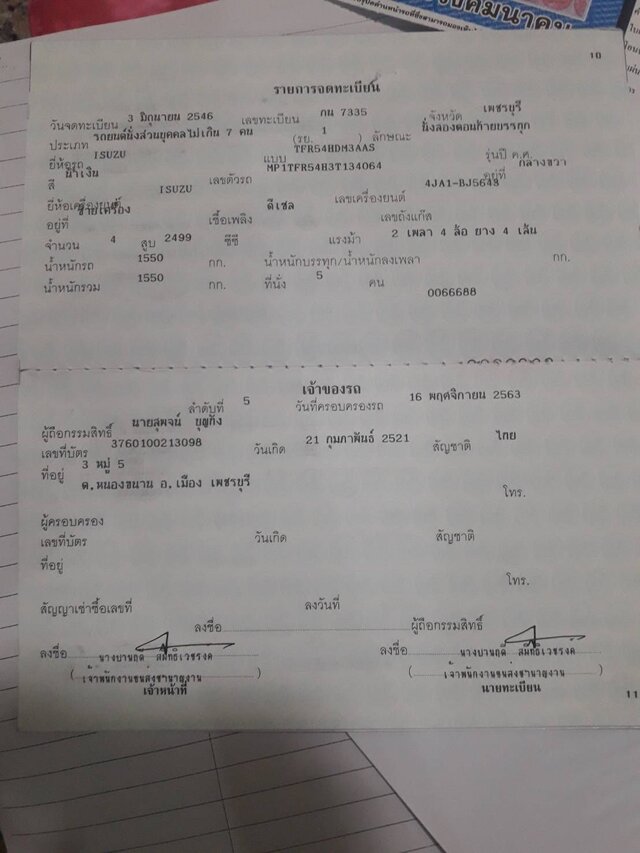 10
รายการจดทะเบียน
วันจดทะเบียน 3 มิถุนายน 2546 เลขทะเบียน กน 7335 จังหวัด เพชรบุรี
ประเภท รถยนต์นั่งส่วนบุคคลไม่เกิน 7 คน (รย. 1 ) ลักษณะ นั่งสองตอนท้ายบรรทุก
ยี่ห้อรถ ISUZU แบบ TFR54HDM3AAS รุ่นปี ค.ศ.
สี น้ำเงิน เลขตัวรถ MP1TFR54H3T134064 อยู่ที่ กลางขวา
ยี่ห้อเครื่องยนต์ ISUZU เลขเครื่องยนต์ 4JA1-BJ5648
อยู่ที่ ซ้ายเครื่อง เชื้อเพลิง ดีเซล เลขถังแก๊ส
จำนวน 4 สูบ 2499 ซีซี แรงม้า 2 เพลา 4 ล้อ ยาง 4 เส้น
น้ำหนักรถ 1550 กก. น้ำหนักบรรทุก/น้ำหนักลงเพลา กก.
น้ำหนักรวม 1550 กก. ที่นั่ง 5 คน
0066688
เจ้าของรถ
ลำดับที่ 5 วันที่ครอบครองรถ 16 พฤศจิกายน 2563
ผู้ถือกรรมสิทธิ์ นายสุพจน์ บุญกิ่ง
เลขที่บัตร 3760100213098 วันเกิด 21 กุมภาพันธ์ 2521 สัญชาติ ไทย
ที่อยู่ 3 หมู่ 5
ต.หนองขนาน อ.เมือง เพชรบุรี
โทร.
ผู้ครอบครอง
เลขที่บัตร วันเกิด สัญชาติ
ที่อยู่
โทร.
สัญญาเช่าซื้อเลขที่ ลงวันที่
ลงชื่อ ผู้ถือกรรมสิทธิ์
ลงชื่อ ลงชื่อ
( เจ้าพนักงานขนส่งชำนาญงาน ) ( เจ้าพนักงานขนส่งชำนาญงาน )
เจ้าหน้าที่ นายทะเบียน
11